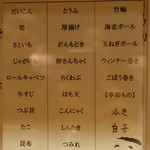 だいこん
梨
さといも
じゃがいも
ロールキャベツ
牛すじ
つぶ貝
たこ
昆布
とうふ
厚揚げ
がんもどき
餅きんちゃく
ちくわぶ
はも天
こんにゃく
しらたき
つみれ
竹輪
海老ボール
玉ねぎボール
ウィンナー巻き
ごぼう巻き
【季節もの】
ふき
白子